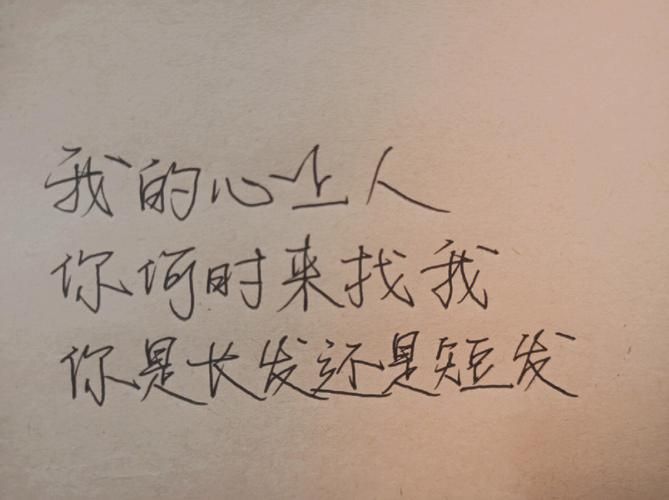 我的心上人
你何时来找我
你是长发还是短发